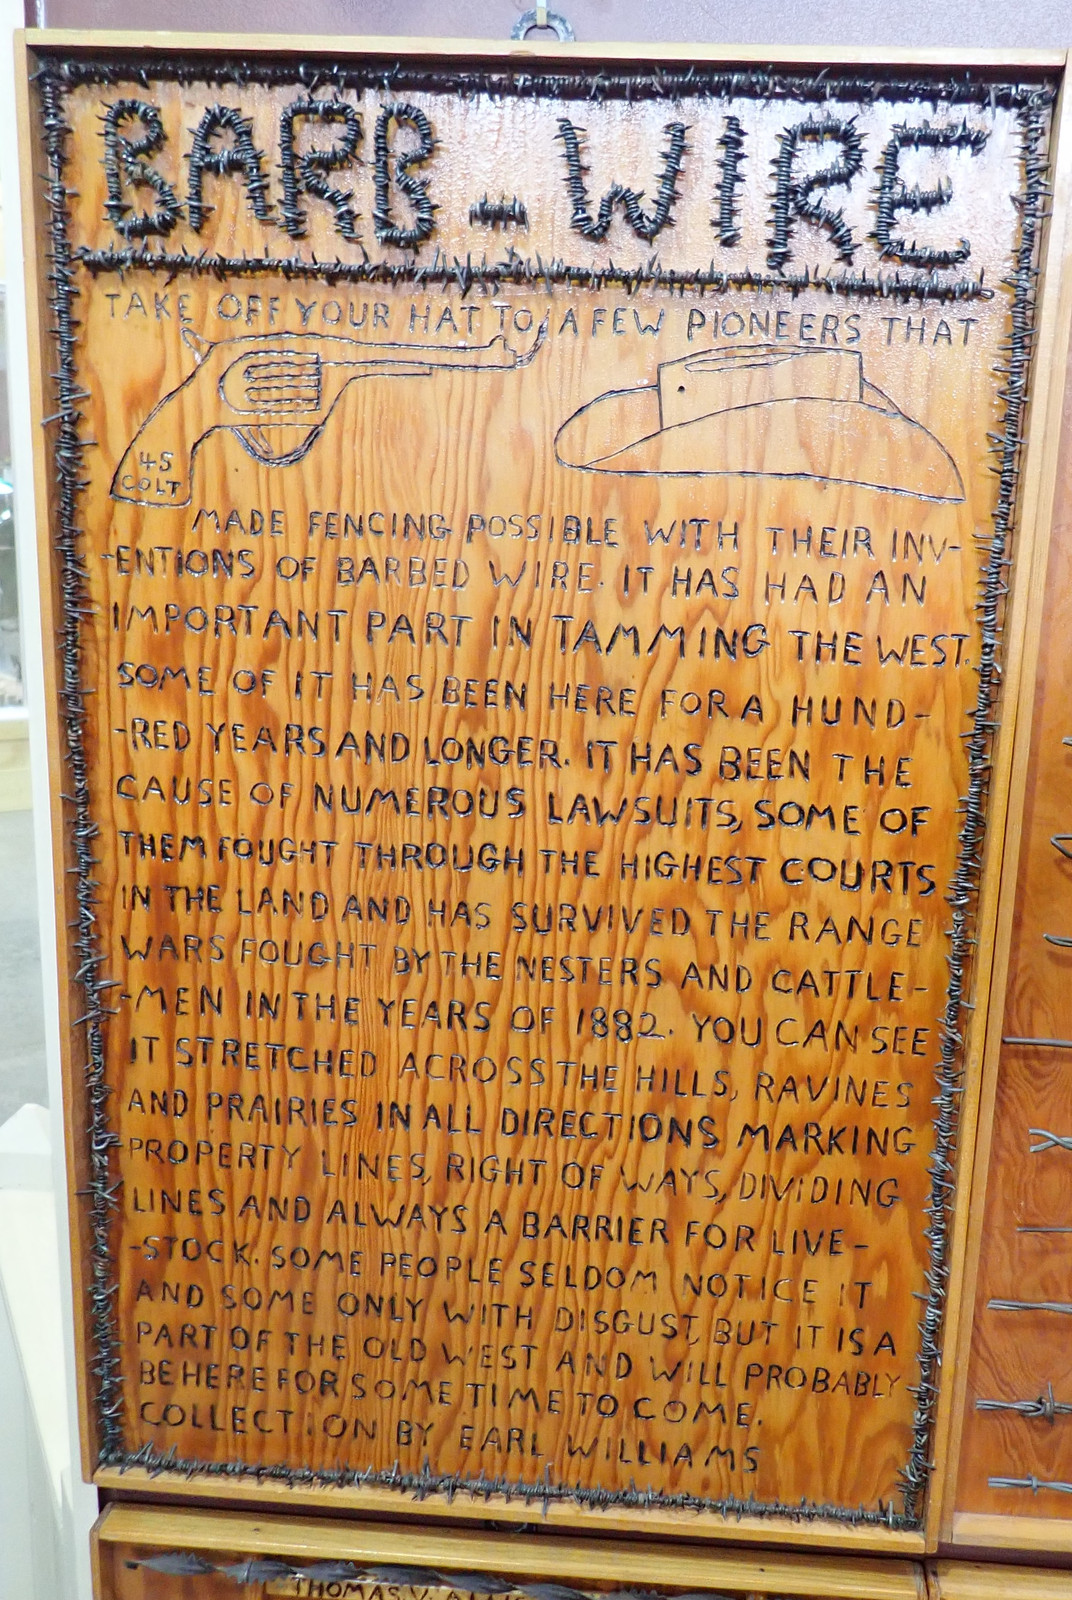 BARB-WIRE
TAKE OFF YOUR HAT TO A FEW PIONEERS THAT
45
COLT
MADE FENCING POSSIBLE WITH THEIR INV-
-ENTIONS OF BARBED WIRE. IT HAS HAD AN
IMPORTANT PART IN TAMMING THE WEST.
SOME OF IT HAS BEEN HERE FOR A HUND-
-RED YEARS AND LONGER. IT HAS BEEN THE
CAUSE OF NUMEROUS LAWSUITS, SOME OF
THEM FOUGHT THROUGH THE HIGHEST COURTS
IN THE LAND AND HAS SURVIVED THE RANGE
WARS FOUGHT BY THE NESTERS AND CATTLE-
-MEN IN THE YEARS OF 1882. YOU CAN SEE
IT STRETCHED ACROSS THE HILLS, RAVINES
AND PRAIRIES IN ALL DIRECTIONS MARKING
PROPERTY LINES, RIGHT OF WAYS, DIVIDING
LINES AND ALWAYS A BARRIER FOR LIVE-
-STOCK. SOME PEOPLE SELDOM NOTICE IT
AND SOME ONLY WITH DISGUST, BUT IT IS A
PART OF THE OLD WEST AND WILL PROBABLY
BE HERE FOR SOME TIME TO COME.
COLLECTION BY EARL WILLIAMS
THOMAS V.